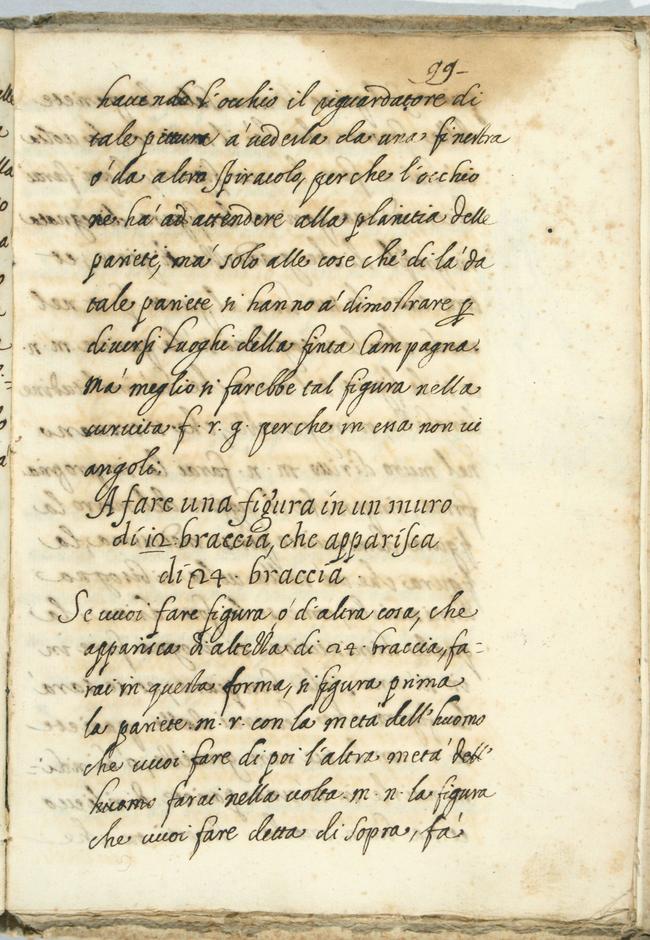 29
hauendo l'occhio il riguardatore di
tale pittura á uederla da una finestra
ó da altro spiracolo, perche l'occhio
ne há ad attendere alla planitia delle
pariete, má solo alle cose che di lá da
tale pariete si hanno á dimostrare ꝑ
diuersi luoghi della finta Campagna.
Má meglio si farebbe tal figura nella
curuita f. r. g. perche in essa non ui
angoli:
A fare una figura in un muro
di 12 braccia, che apparisca
di 24. braccia
Se uuoi fare figura ó d'altra cosa, che
apparisca di altezza di 24. braccia, fa=
rai in questa forma, si figura prima
la pariete. m. r. con la metá dell'huomo
che uuoi fare di poi l'altra metá dell'
huomo farai nella uolta. m. n. la figura
che uuoi fare detta di sopra, fá